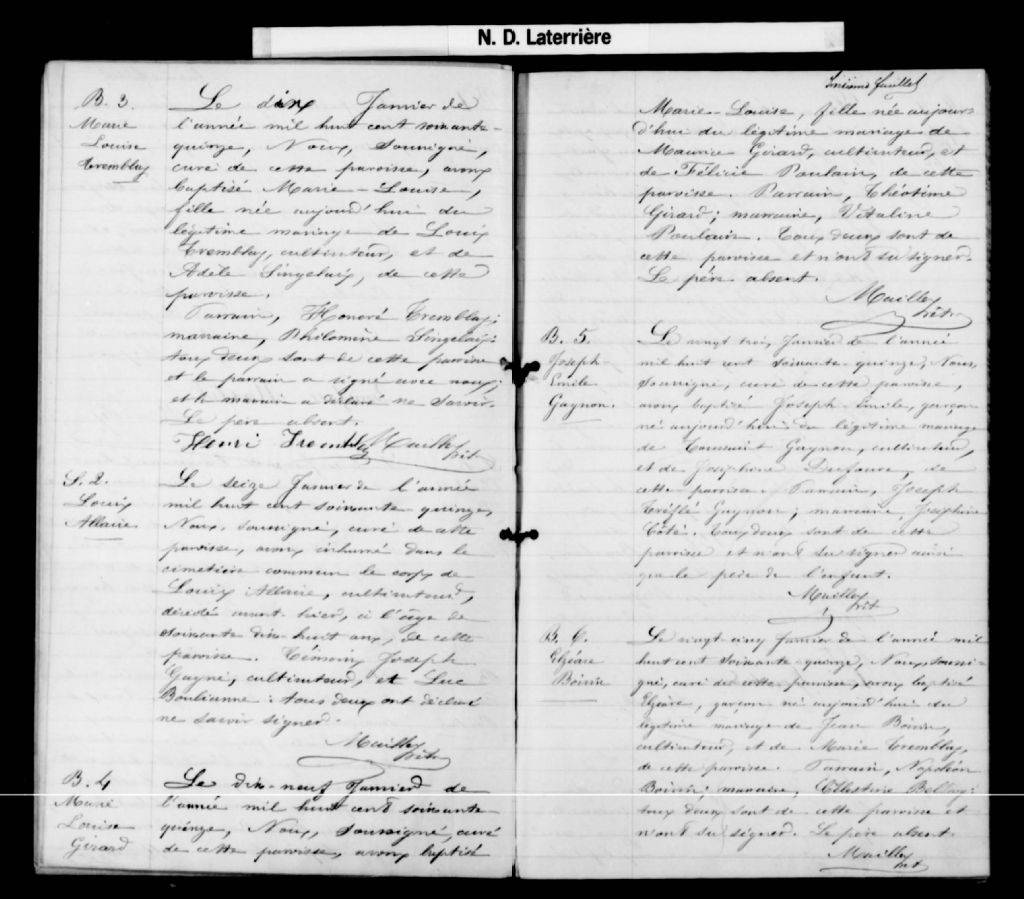 N. D. Laterrière
B. 3.
Marie
Louise
Tremblay
Le dix Janvier de
l'année mil huit cent soixante-
quinze, Nous, Soussigné,
curé de cette paroisse, avons
baptisé Marie-Louise,
fille née aujourd'hui du
légitime mariage de Louis
Tremblay, cultivateur, et de
Adèle Singelais, de cette
paroisse.
Parrain, Honoré Tremblay;
marraine, Philomène Singelais;
tous deux sont de cette paroisse
et le parrain a signé avec nous;
et la marraine a déclaré ne savoir.
Le père absent.
Henri Tremblay Mailley
ptre
S. 2.
Louis
Allaire
Le seize Janvier de l'année
mil huit cent soixante quinze,
Nous, soussigné, curé de cette
paroisse, avons inhumé dans le
cimetière commun le corps de
Louis Allaire, cultivateur,
décédé avant-hier, à l'âge de
soixante dix-huit ans, de cette
paroisse. Témoins Joseph
Gagné, cultivateur, et Luc
Boulianne: tous deux ont déclaré
ne savoir signer.
Mailley
ptre
B. 4
Marie
Louise
Girard
Le dix-neuf Janvier de
l'année mil huit cent soixante
quinze, Nous, soussigné, curé
de cette paroisse, avons baptisé
feuillet
Marie-Louise, fille née aujour-
d'hui du légitime mariage de
Maurice Girard, cultivateur, et
de Félicie Poulain, de cette
paroisse. Parrain, Théotime
Girard; marraine, Vitaline
Poulain. Tous deux sont de
cette paroisse et n'ont su signer.
Le père absent.
Mailley
ptre
B. 5.
Joseph-
Emile
Gagnon.
Le vingt trois Janvier de l'année
mil huit cent soixante-quinze, Nous,
soussigné, curé de cette paroisse,
avons baptisé Joseph-Emile, garçon
né aujourd'hui du légitime mariage
de Toussaint Gagnon, cultivateur,
et de Josephine Dufour, de
cette paroisse. Parrain, Joseph
Trifflé Gagnon; marraine, Josephine
Côté. Tous deux sont de cette
paroisse et n'ont su signer ainsi
que le père de l'enfant.
Mailley
ptre
B. 6.
Elzéare
Boivin
Le vingt cinq Janvier de l'année mil
huit cent soixante-quinze, Nous, soussi-
gné, curé de cette paroisse, avons baptisé
Elzéare, garçon né aujourd'hui du
légitime mariage de Jean Boivin,
cultivateur, et de Marie Tremblay,
de cette paroisse. Parrain, Napoléon
Boivin; marraine, Célestine
tous deux sont de cette paroisse et
n'ont su signer. Le père absent.
Mailley
ptre